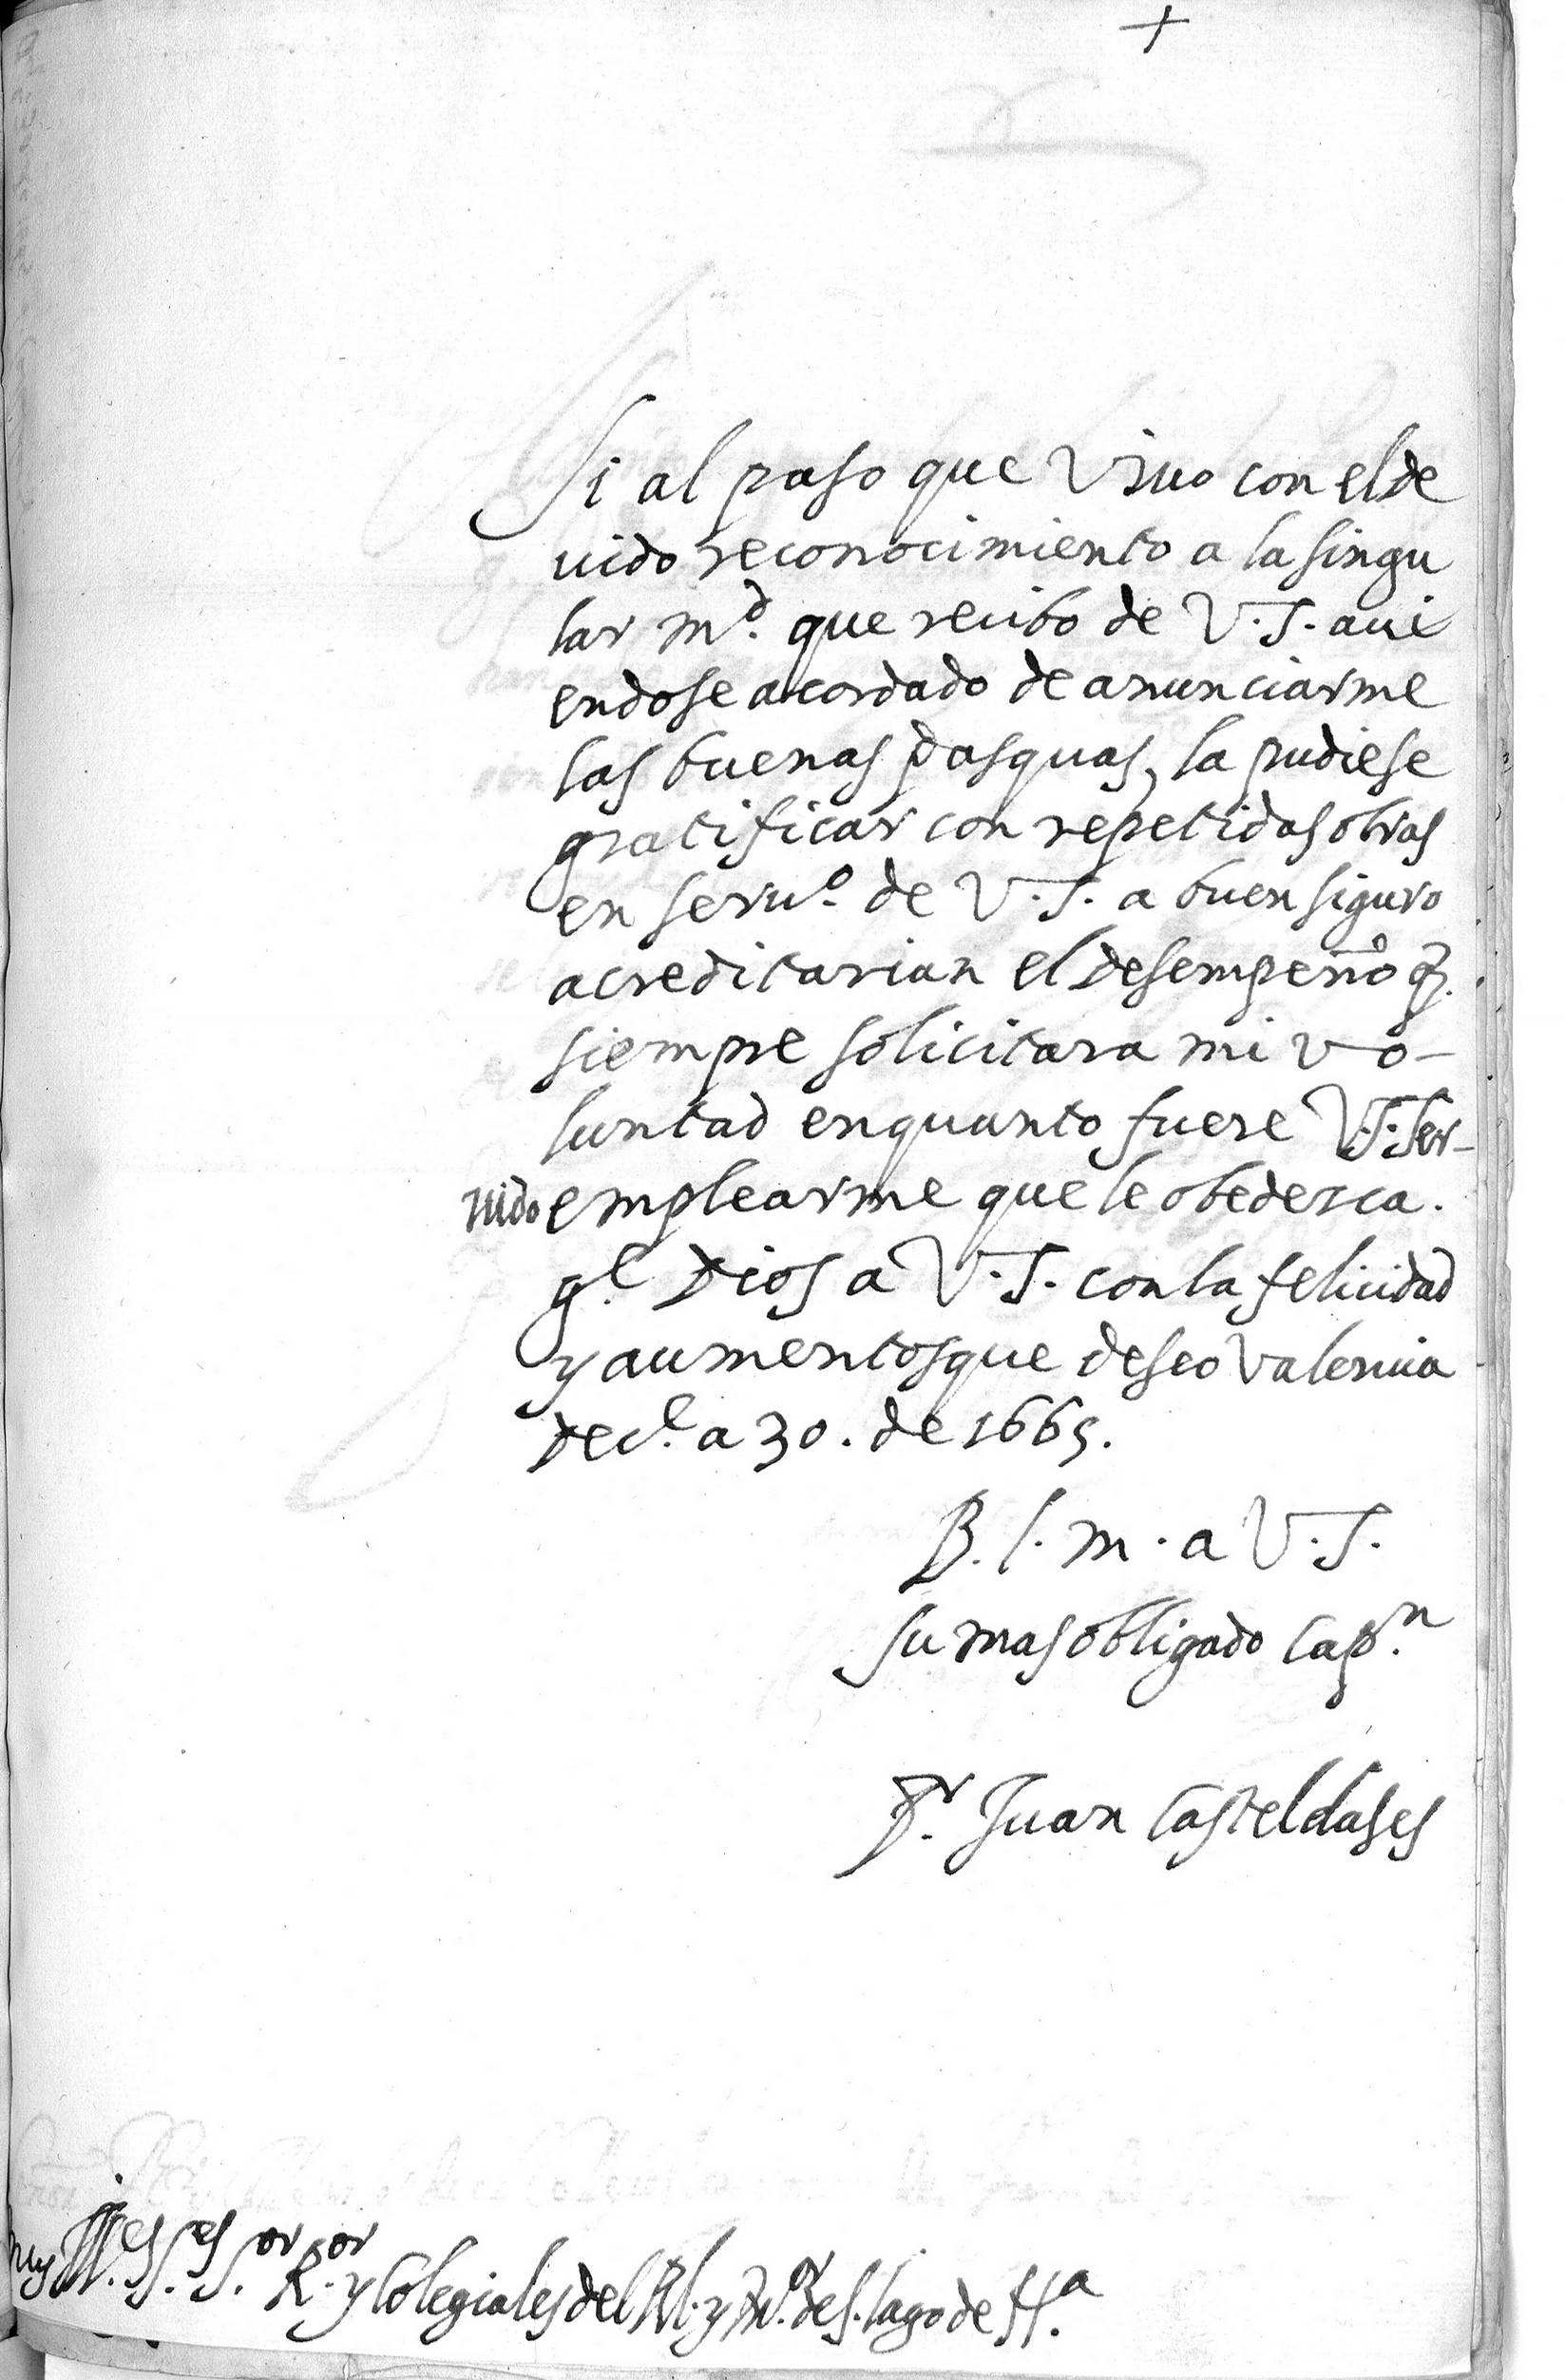 +
Si al paso que Viuo con el de
uido reconocimiento a la singu
lar md. que recibo de V.S. aui
endose acordado de anunciarme
las buenas pasquas, la pudiese
gratificar con repetidas obras
en seruo. de V.S. a buen siguro
acreditarian el desempeño q.
siempre solicitara mi vo-
luntad enquanto fuere V.S. ser-
uido emplearme que le obedesca.
ge. Dios a V.S. con la felicidad
y aumentos que deseo Valencia
Dece. a 30. de 1665.
B. l. m. a V.S.
su mas obligado Capn.
Dr. Juan Casteldases
Muy Ill.es S.es S.or R.or y Colegiales del Rl. y de S. Iago de Ha.